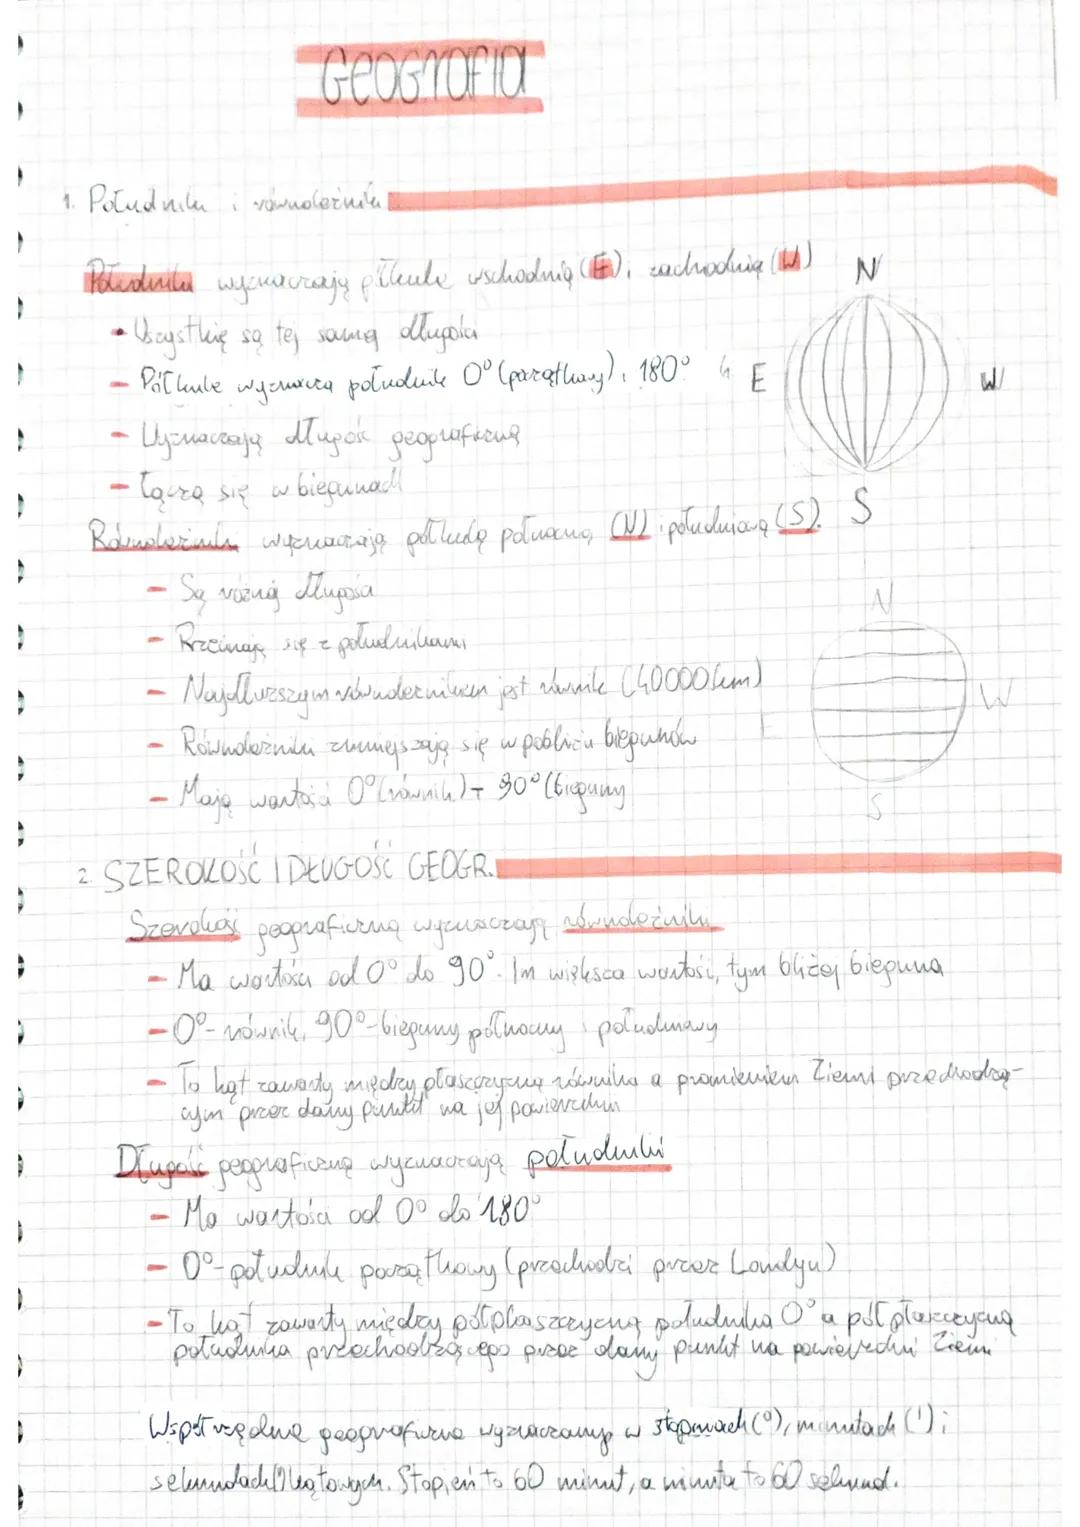 GEOGRAFIA
1. Południki i równoleżniki
Południki wyznaczają półkule wschodnią (E) i zachodnią (W)
N
• Wszystkie są tej samej długości
- Półkule wyznacza południk 0° (początkowy) i 180°
E
W
- Wyznaczają długość geograficzną
- Łączą się w biegunach
S
Równoleżniki wyznaczają półkulę północną (N) i południową (S).
- Są różnej długości
N
- Przecinają się z południkami
- Najdłuższym równoleżnikiem jest równik (40000 km)
W
E
- Równoleżniki zmniejszają się w pobliżu biegunów
- Mają wartości 0° (równik) - 90° (bieguny
S
2. SZEROKOŚĆ I DŁUGOŚĆ GEOGR.
Szerokość geograficzną wyznaczają równoleżniki
- Ma wartości od 0° do 90°. Im większa wartość, tym bliżej bieguna
- 0° - równik, 90° - bieguny północny i południowy
- To kąt zawarty między płaszczyzną równika a promieniem Ziemi przechodzą-
cym przez dany punkt na jej powierzchni
Długość geograficzną wyznaczają południki
- Ma wartości od 0° do 180°
- 0° - południk początkowy (przechodzi przez Londyn)
- To kąt zawarty między półpłaszczyzną południka 0° a półpłaszczyzną
południka przechodzącego przez dany punkt na powierzchni Ziemi
Współrzędne geograficzne wyznaczamy w stopniach (°), minutach (') i
sekundach (") kątowych. Stopień to 60 minut, a minuta to 60 sekund.